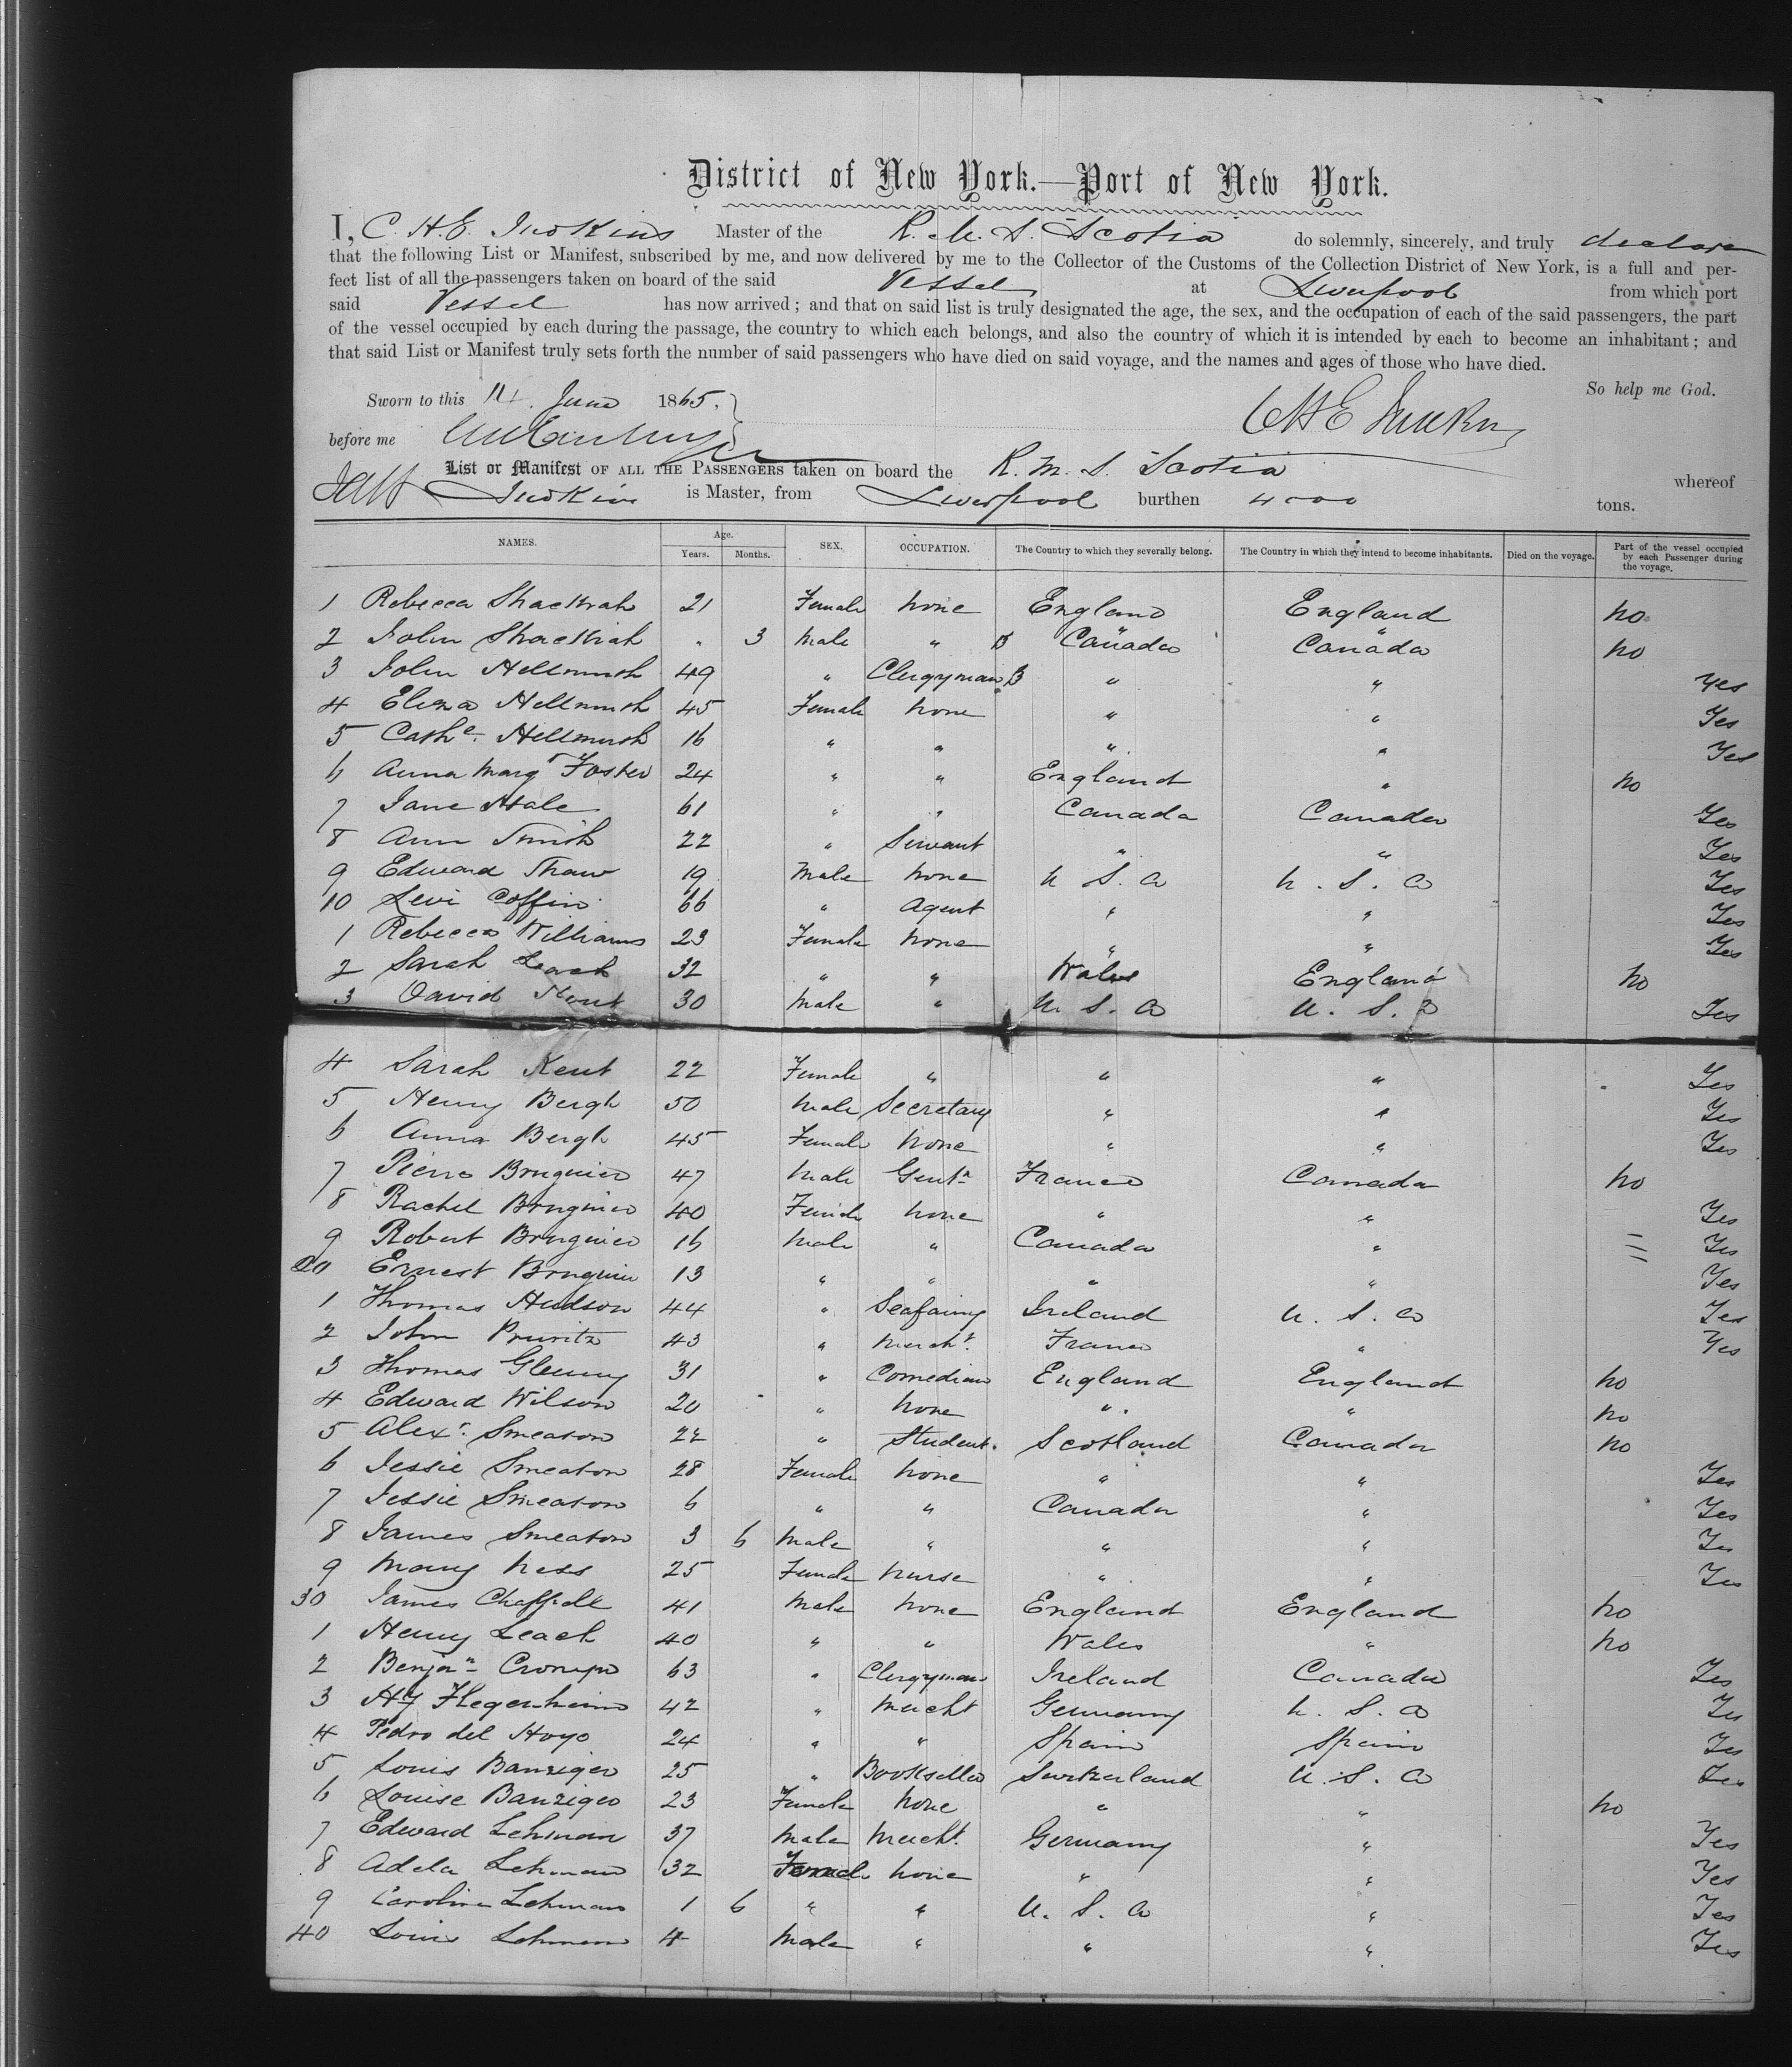 District of New York.—Port of New York.
I, C. H. E. Judkins Master of the R. M. S. Scotia do solemnly, sincerely, and truly declare
that the following List or Manifest, subscribed by me, and now delivered by me to the Collector of the Customs of the Collection District of New York, is a full and per-
fect list of all the passengers taken on board of the said Vessel at Liverpool from which port
said Vessel has now arrived; and that on said list is truly designated the age, the sex, and the occupation of each of the said passengers, the part
of the vessel occupied by each during the passage, the country to which each belongs, and also the country of which it is intended by each to become an inhabitant; and
that said List or Manifest truly sets forth the number of said passengers who have died on said voyage, and the names and ages of those who have died.
So help me God.
Sworn to this 14 June 1865.
before me
List or Manifest OF ALL THE PASSENGERS taken on board the R. M. S. Scotia whereof
Judkins is Master, from Liverpool burthen 4000 tons.
NAMES. Age. Years. Months. SEX. OCCUPATION. The Country to which they severally belong. The Country in which they intend to become inhabitants. Died on the voyage. Part of the vessel occupied by each Passenger during the voyage.
1 Rebecca 21 Female None England England No
2 John " 3 Male " B Canada Canada No
3 John Hellmuth 49 " Clergyman B " " Yes
4 Eliza Hellmuth 45 Female None " " Yes
5 Cathe. Hellmuth 16 " " " " Yes
6 Anna Margt Foster 24 " " England " No
7 Jane Hale 61 " " Canada Canada Yes
8 Ann Smith 22 " Servant " " Yes
9 Edward Thaw 19 Male None U S. A U. S. A Yes
10 Levi Coffin 66 " Agent " " Yes
1 Rebecca Williams 23 Female None " " Yes
2 Sarah Leach 32 " " Wales England No
3 David Kent 30 Male " U. S. A U. S. A Yes
4 Sarah Kent 22 Female " " " Yes
5 Henry Bergh 50 Male Secretary " " Yes
6 Anna Bergh 45 Female None " " Yes
7 Pierre Bruguier 47 Male Gentn France Canada No
8 Rachel Bruguier 40 Female None " " Yes
9 Robert Bruguier 16 Male " Canada " Yes
20 Ernest Bruguier 13 " " " " Yes
1 Thomas Hudson 44 " Seafaring Ireland U. S. A Yes
2 John 43 " Mercht. France " Yes
3 Thomas Glenny 31 " Comedian England England No
4 Edward Wilson 20 " None " " No
5 Alexr. Smeaton 22 " Student. Scotland Canada No
6 Jessie Smeaton 28 Female None " " Yes
7 Jessie Smeaton 6 " " Canada " Yes
8 James Smeaton 3 6 Male " " " Yes
9 Mary Ness 25 Female Nurse " " Yes
30 James 41 Male None England England No
1 Henry Leach 40 " " Wales " No
2 Benjn Cronyn 63 " Clergyman Ireland Canada Yes
3 Hy Flegenheim 42 " Mercht Germany U. S. A Yes
4 Pedro del Hoyo 24 " " Spain Spain Yes
5 Louis Banziger 25 " Bookseller Switzerland U. S. A Yes
6 Louise Banziger 23 Female None " " No
7 Edward Lehman 37 Male Mercht. Germany " Yes
8 Adela Lehman 32 Female None " " Yes
9 Caroline Lehman 1 6 " " U. S. A " Yes
40 Louis Lehman 4 Male " " " Yes